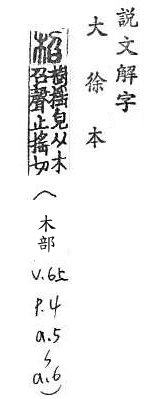 說文解字
大徐本
柖
樹摇皃从木
召聲止摇切
(木部
V.6上
P.4
a.5
~
a.6)